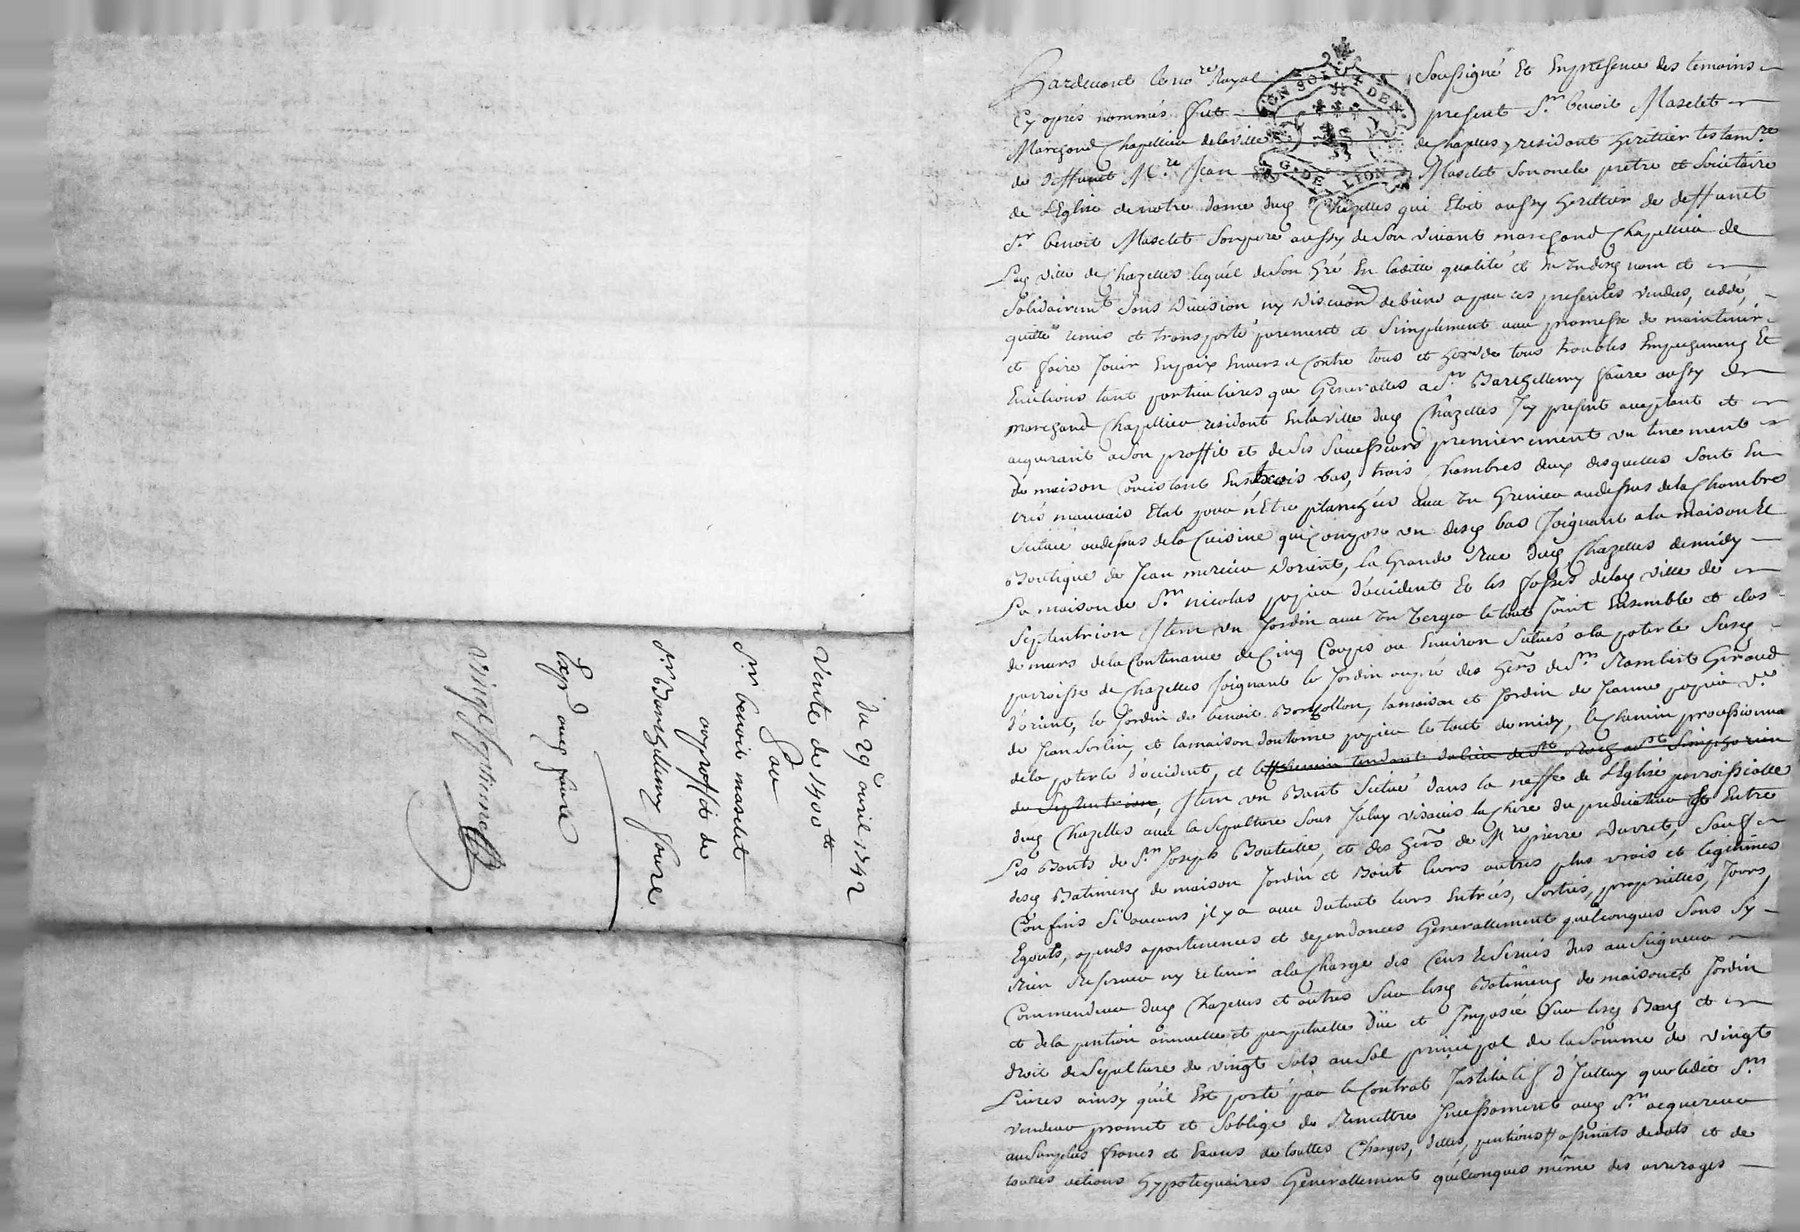 du 29e avril 1742
Vente de 1400 tt
Pour
Sr. benoit maselet
au proffit de
Sr. Barthellemy faure
Expd. aud. faure
vingt septieme
Pardevant le no.re Royal soussigné Et En presence des temoins
Cy aprés nommés fut present Sr. benoit Maselet
Marchand Chapellier de la ville de Chazelles y residant heritier testam.re
de deffunct M.re Jean Maselet son oncle pretre et Societaire
de L'Eglise de notre dame dud. Chazelles qui Etoit aussy heritier de deffunct
Sr. benoit Maselet son pere aussy de son vivant marchand Chapellier de
lad. ville de Chazelles lequel de son gré En laditte qualité et En son nom et
solidairemt. sans Division ny Discution de biens a par ces presentes vendu, ceddé,
quitté remis et transporté purement et simplement avec promesse de maintenir
et faire Jouir En paix Envers et Contre tous et de tous troubles Empechemens Et
Evictions tant particulieres que Generalles a Sr. Barthellemy faure aussy
marchand Chapellier residant En la ville dud. Chazelles Icy present acceptant et
acquerant a son proffit et de ses successeurs premierement un tenement
de maison Consistant En trois bas, trois Chambres deux desquelles sont En
trés mauvais Etat pour n'Etre planchées avec un Grenier au dessus de la Chambre
située au dessus de la Cuisine qui Compose un desd. bas Joignant a la maison Et
Boutique de Jean mercier d'orient, la Grande Rue dud. Chazelles de midy
La maison de Sr. nicolas pupier d'occident Et les fossés de lad. ville de
Septentrion Item un Jardin avec un Verger le tout Joint Ensemble et clos
de murs de la Contenance de Cinq Coupes ou Environ situés a la poterle susd.
parroisse de Chazelles Joignant le Jardin des hers. de Sr. Rambert Giraud
d'orient, le Jardin de benoit, la maison et Jardin de Jeanne pupier ve.
de Jean, et la maison d'antoine pupier le tout de midy, le Chemin
de la poterle d'occident, et le Chemin tendant du lieu de St. Roch a St. Simphorien
de Septentrion, Item un Banc situé dans la neffe de L'Eglise parroissialle
dud. Chazelles avec la sepulture sous Iceluy visavis la chere du predicateur Entre
Les Bancs de Sr. Joseph Bouteille, et des hers. de Me. pierre, sauf
desd. Batimens de maison Jardin et Banc leurs autres plus vrais et legitimes
Confins si aucuns il y a avec du tout leurs Entrées, sorties, proprietés, Jours,
Egouts, apends apartenances et dependances Generallement quelconques sans sy
Rien Reserver ny retenir a la Charge des Cens et Servis dus au Seigneur
Commandeur dud. Chazelles et autres sur lesd. Batimens de maison et Jardin
et de la pention annuelle et perpetuelle düe et Imposée sur lesd. Banc et
droit de sepulture de vingt sols au sol principal de la somme de vingt
Livres ainsy qu'il Est porté par le Contrat d'Icelluy que ledit Sr.
vendeur promet et s'oblige de Remettre Incessamment aud. Sr. acquereur
au surplus francs et Exents de touttes Charges, dettes, pentions, assinats de dots et de
touttes actions hypotequaires Generallement quelconques même des arrerages